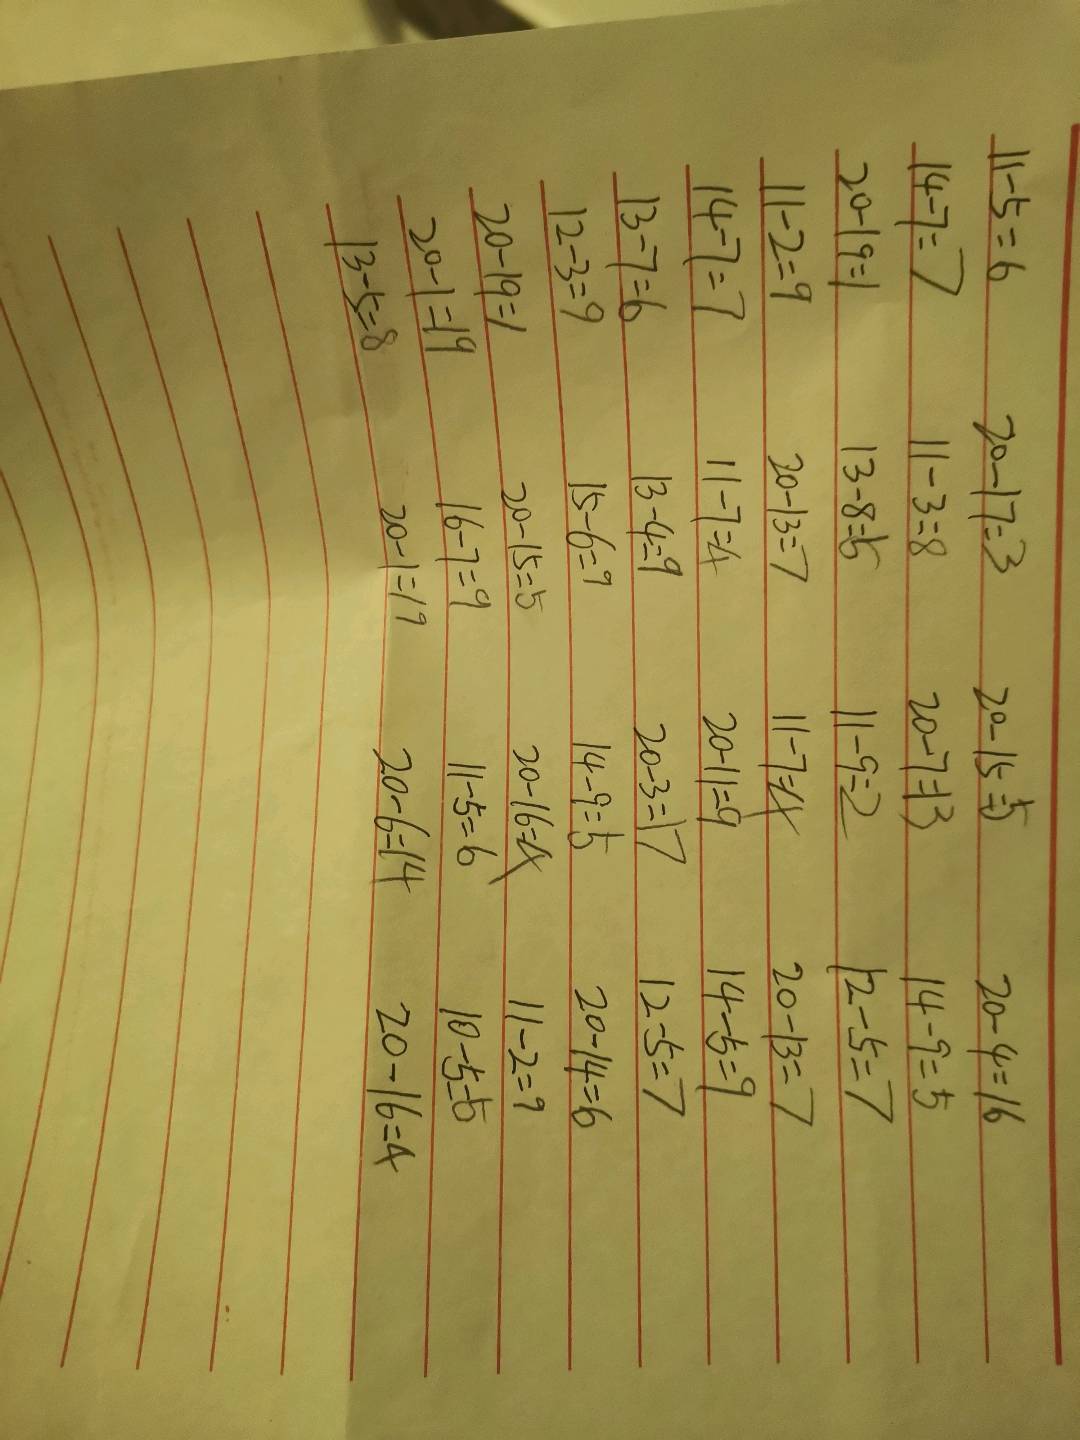 11-5=6 20-17=3 20-15=5 20-4=16
14-7=7 11-3=8 20-7=13 14-9=5
20-19=1 13-8=5 11-9=2 12-5=7
11-2=9 20-13=7 11-7=4 20-13=7
14-7=7 11-7=4 20-11=9 14-5=9
13-7=6 13-4=9 20-3=17 12-5=7
12-3=9 15-6=9 14-9=5 20-14=6
20-19=1 20-15=5 20-16=4 11-2=9
20-1=19 16-7=9 11-5=6 10-5=5
13-5=8 20-1=19 20-6=14 20-16=4